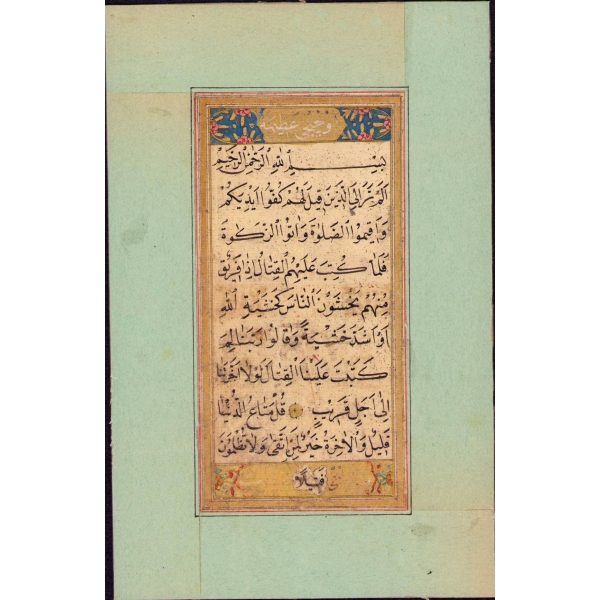 بِسْمِ اللّٰهِ الرَّحْمٰنِ الرَّحِيْمِ
اَلَمْ تَرَ اِلَى الَّذِينَ قِيلَ لَهُمْ كُفُّوا اَيْدِيَكُمْ
وَاَقِيمُوا الصَّلٰوةَ وَاٰتُوا الزَّكٰوةَ
فَلَمَّا كُتِبَ عَلَيْهِمُ الْقِتَالُ اِذَا فَرِيقٌ
مِنْهُمْ يَخْشَوْنَ النَّاسَ كَخَشْيَةِ اللّٰهِ
اَوْ اَشَدَّ خَشْيَةً وَقَالُوا رَبَّنَا لِمَ
كَتَبْتَ عَلَيْنَا الْقِتَالَ لَوْلَا اَخَّرْتَنَا
اِلٰى اَجَلٍ قَرِيبٍ قُلْ مَتَاعُ الدُّنْيَا
قَلِيلٌ وَالْاٰخِرَةُ خَيْرٌ لِمَنِ اتَّقٰى وَلَا تُظْلَمُونَ
فَتِيلًا